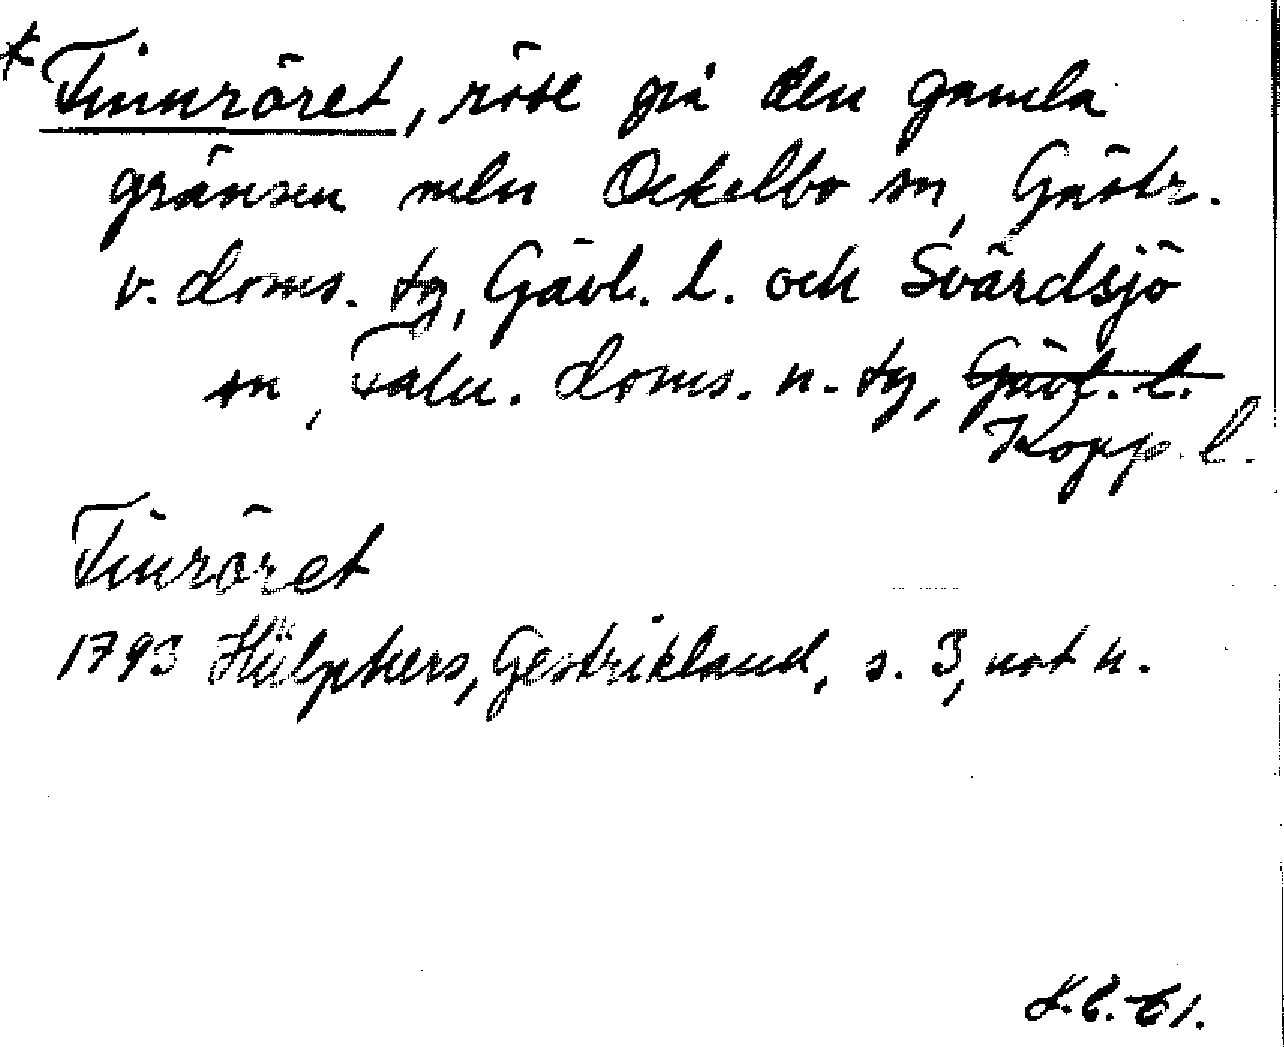 * Finnröret, röse på den gamla
gränsen mln Ockelbo sn, Gästr.
v. doms. tg, Gävl. l. och Svärdsjö
sn, Falu. doms. n. tg, Gävl. l.
Kopp. l.
Finröret
1793 Hülphers, Gestrikland, s. 3, not n.